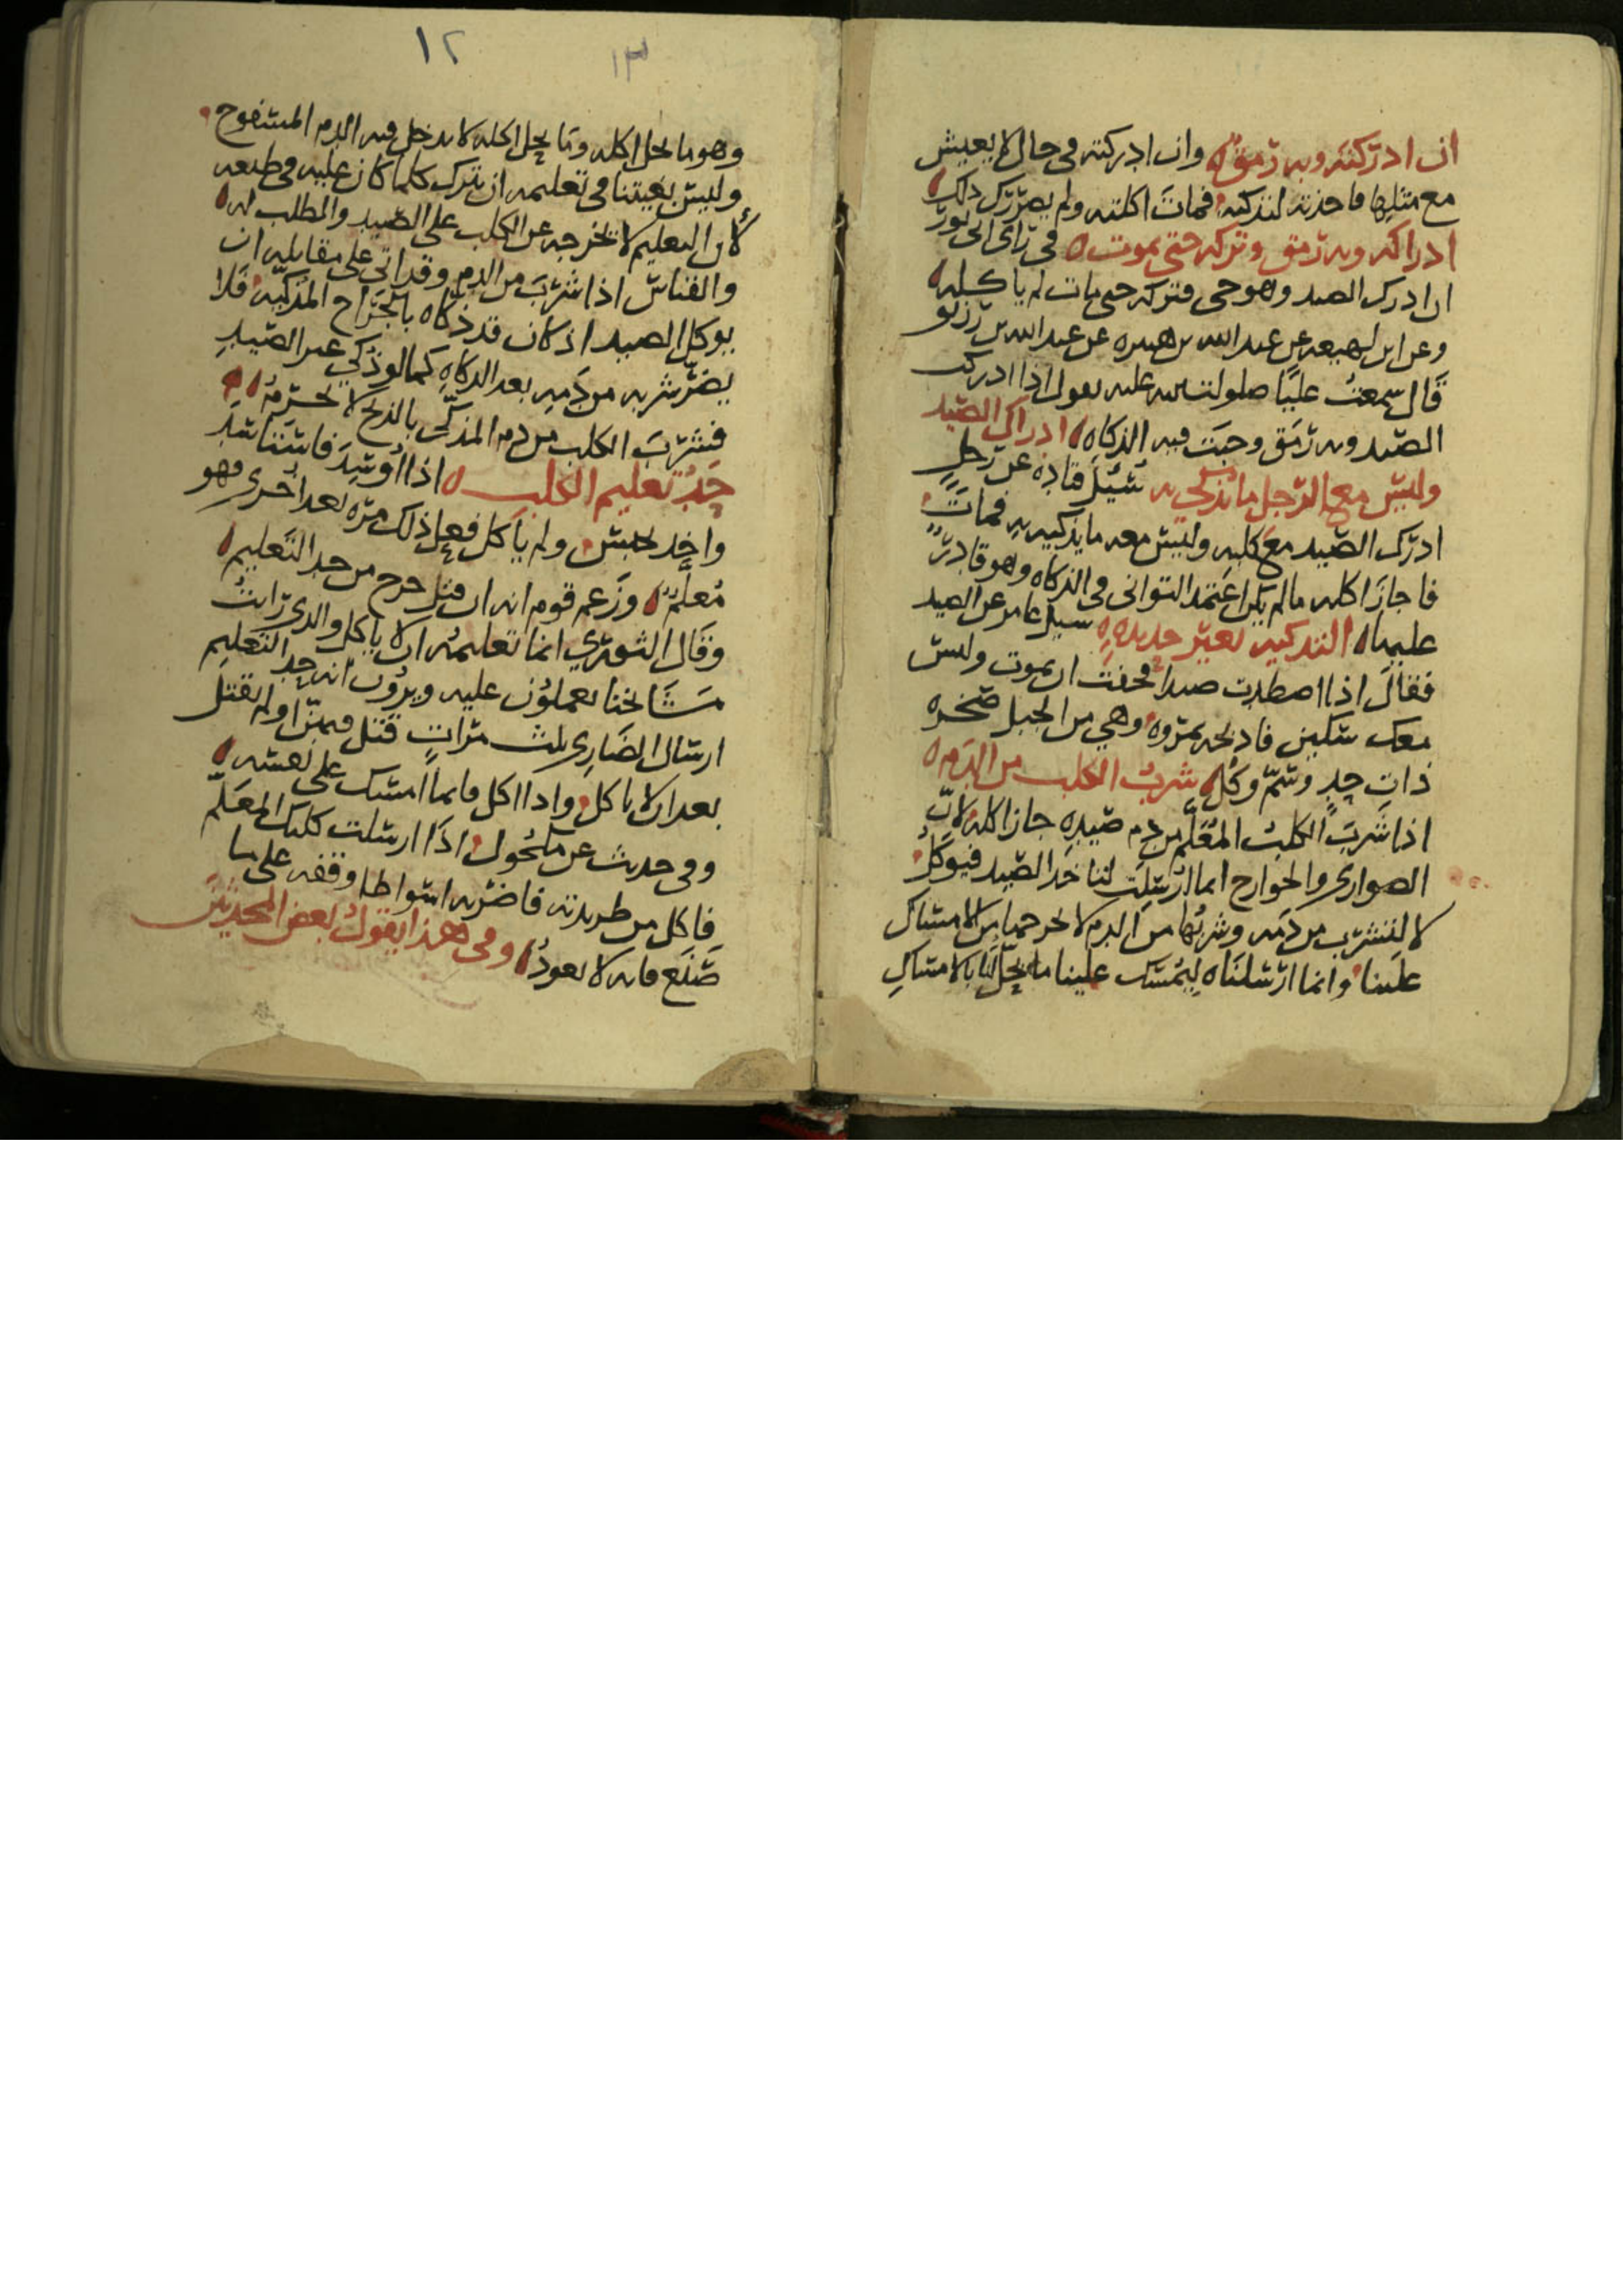 ان ادركته وبه رمق وان ادركته في حال لا يعيش
مع مثلها فاخذته لتذكيه فمات اكلته ولم يضررك ذلك
ادراكه وبه رمق وتركه حتى يموت في راى ابى ثور
ان ادرك الصيد وهو حي فتركه حتى مات لم ياكله
وعن ابن لهيعه عن عبد الله بن هبيره عن عبد الله بن زرير
قال سمعت عليا صلوات الله عليه يقول اذا ادركت
الصيد وبه رمق وجبت فيه الذكاه ادراك الصيد
وليس مع الرجل ما يذكي به سئل قتاده عن رجل
ادرك الصيد مع كلبه وليس معه ما يذكيه به فمات
فاجاز اكله ما لم يكن اعتمد التوانى في الذكاه وهو قادر
عليها التذكيه بغير حديده سئل عامر عن الصيد
فقال اذا اصطدت صيدا فخفت ان يموت وليس
معك سكين فاذبحه بمروه وهي من الجبل صخره
ذات حد وسم وكل شرب الكلب من الدم
اذا شرب الكلب المعلم من دم صيده جاز اكله لان
الضوارى والجوارح انما ارسلت لناخذ الصيد فيوكل
لا لنشرب من دمه وشربها من الدم لا يخرجها من الامساك
علينا وانما ارسلناه ليمسك علينا ما يحل لنا بالامساك
١٢ ١٣
وهو ما يحل اكله وما يحل اكله لا يدخل فيه الدم المسفوح
وليس بغيتنا في تعليمه ان يترك كلما كان عليه في طبعه
لان التعليم لا يخرجه عن الكلب على الصيد والطلب له
والقياس اذا شرب من الدم وقد اتى على مقاتله ان
يوكل الصيد اذ كان قد ذكاه بالجراح المذكيه فلا
يضر شربه من دمه بعد الذكاه كما لو ذكي غير الصيد
فشرب الكلب من دم المذكى بالذبح لا يحرمه
حد تعليم الكلب اذا اوسد فاستاسد
واخذ فحبس ولم ياكل ففعل ذلك مره بعد اخرى فهو
معلم وزعم قوم انه ان قتل خرج من حد التعليم
وقال الثوري انما تعليمه ان لا ياكل والذي رايت
مشائخنا يعملون عليه ويرون انه حد التعليم
ارسال الضارى ثلث مرات قتل فيهن او لم يقتل
بعد ان لا ياكل واذا اكل فانما امسك على نفسه
وفى حديث عن مكحول اذا ارسلت كلبك المعلم
فاكل من طريدته فاضربه اسواطا وقفه على ما
صنع فانه لا يعود وفى هذا يقول بعض المحدثين